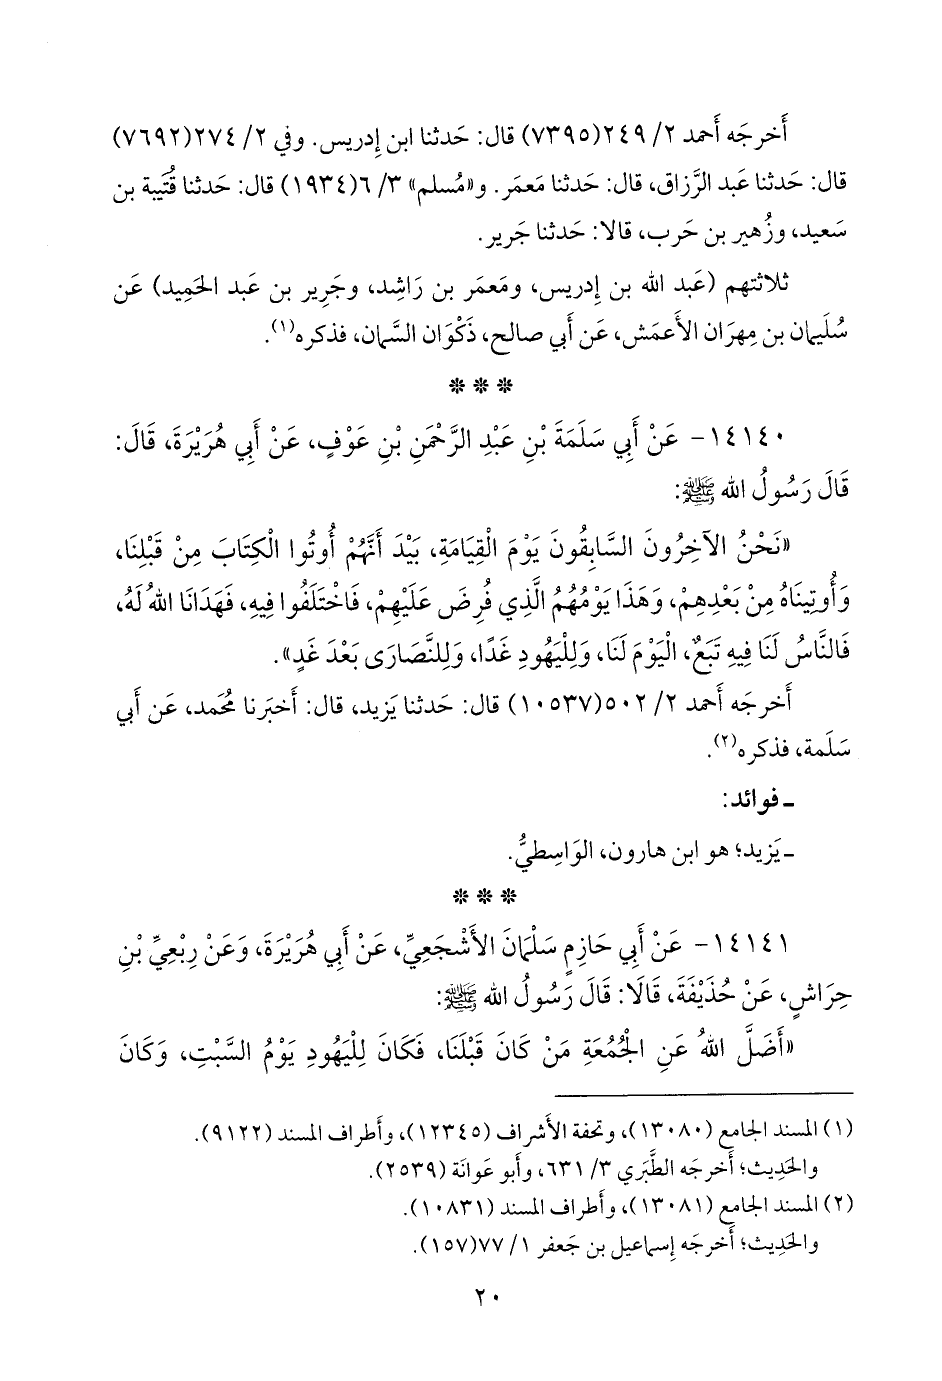 أَخرجَه أَحمد ٢/ ٢٤٩(٧٣٩٥) قال: حَدثنا ابن إِدريس. وفي ٢/ ٢٧٤(٧٦٩٢)
قال: حَدثنا عَبد الرَّزاق، قال: حَدثنا مَعمَر. و«مُسلم» ٣/ ٦(١٩٣٤) قال: حَدثنا قُتَيبة بن
سَعيد، وزُهير بن حَرب، قالا: حَدثنا جَرير.
ثلاثتهم (عَبد الله بن إِدريس، ومَعمَر بن رَاشِد، وجَرِير بن عَبد الحَمِيد) عَن
سُلَيمان بن مِهرَان الأَعمَش، عَن أَبي صالح، ذَكْوَان السَّمان، فذكره(١).
* * *
١٤١٤٠- عَنْ أَبِي سَلَمَةَ بْنِ عَبْدِ الرَّحْمَنِ بْنِ عَوْفٍ، عَنْ أَبِي هُرَيْرَةَ، قَالَ:
قَالَ رَسُولُ الله ﷺ:
«نَحْنُ الآخِرُونَ السَّابِقُونَ يَوْمَ الْقِيَامَةِ، بَيْدَ أَنَّهُمْ أُوتُوا الْكِتَابَ مِنْ قَبْلِنَا،
وَأُوتِينَاهُ مِنْ بَعْدِهِمْ، وَهَذَا يَوْمُهُمُ الَّذِي فُرِضَ عَلَيْهِمْ، فَاخْتَلَفُوا فِيهِ، فَهَدَانَا اللهُ لَهُ،
فَالنَّاسُ لَنَا فِيهِ تَبَعٌ، الْيَوْمَ لَنَا، وَلِلْيَهُودِ غَدًا، وَلِلنَّصَارَى بَعْدَ غَدٍ».
أَخرجَه أَحمد ٢/ ٥٠٢(١٠٥٣٧) قال: حَدثنا يَزيد، قال: أَخبَرنا مُحمد، عَن أَبي
سَلَمة، فذكره(٢).
ـ فوائد:
ـ يَزيد؛ هو ابن هارون، الوَاسِطيُّ.
* * *
١٤١٤١- عَنْ أَبِي حَازِمٍ سَلْمَانَ الأَشْجَعِيِّ، عَنْ أَبِي هُرَيْرَةَ، وَعَنْ رِبْعِيِّ بْنِ
حِرَاشٍ، عَنْ حُذَيْفَةَ، قَالَا: قَالَ رَسُولُ الله ﷺ:
«أَضَلَّ اللهُ عَنِ الْجُمُعَةِ مَنْ كَانَ قَبْلَنَا، فَكَانَ لِلْيَهُودِ يَوْمُ السَّبْتِ، وَكَانَ
(١) المسند الجامع (١٣٠٨٠)، وتحفة الأَشراف (١٢٣٤٥)، وأَطراف المسند (٩١٢٢).
والحَدِيث؛ أَخرجَه الطَّبَري ٣/ ٦٣١، وأَبو عَوانَة (٢٥٣٩).
(٢) المسند الجامع (١٣٠٨١)، وأَطراف المسند (١٠٨٣١).
والحَدِيث؛ أَخرجَه إِسماعيل بن جَعفر ١/ ٧٧(١٥٧).
٢٠